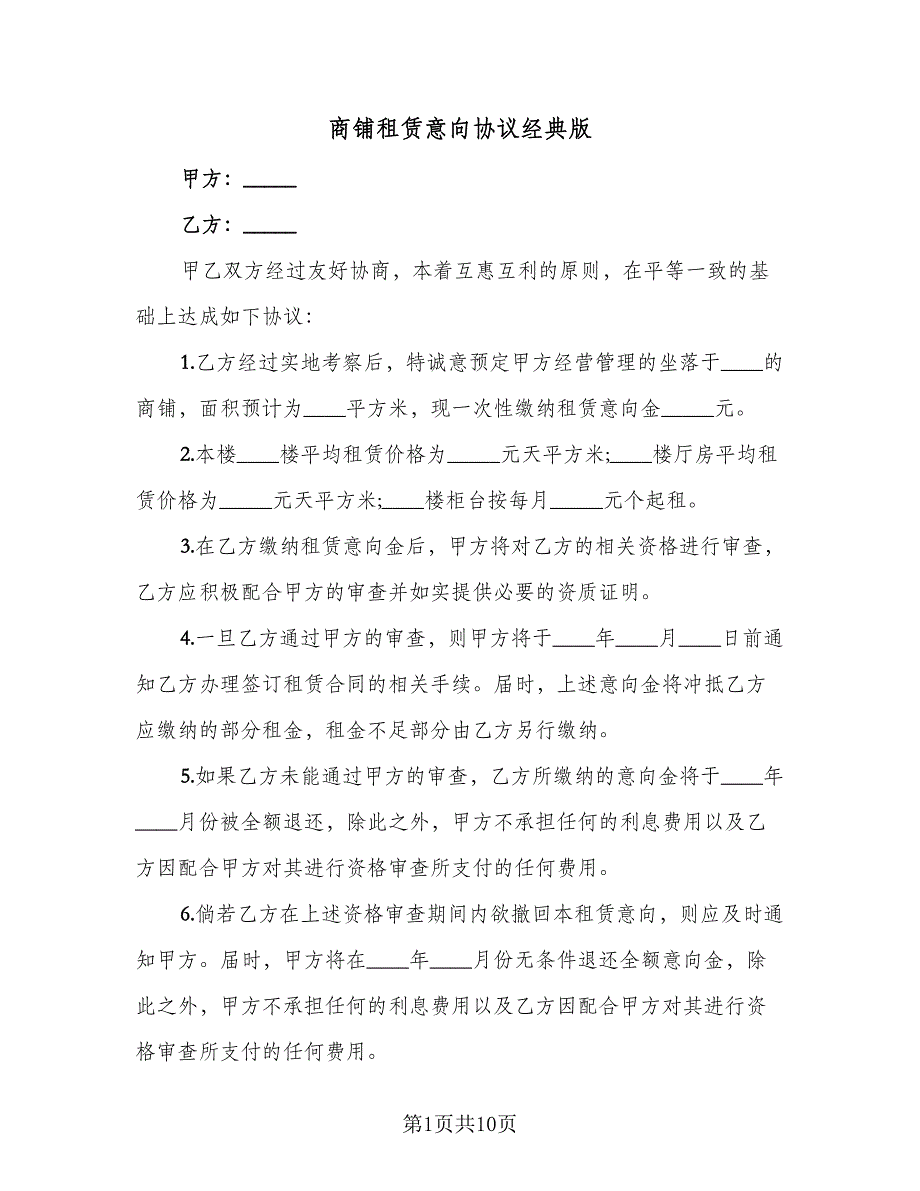 商铺租赁意向协议经典版
甲方：_____
乙方：_____
甲乙双方经过友好协商，本着互惠互利的原则，在平等一致的基
础上达成如下协议：
1.乙方经过实地考察后，特诚意预定甲方经营管理的坐落于____的
商铺，面积预计为____平方米，现一次性缴纳租赁意向金_____元。
2.本楼____楼平均租赁价格为_____元天平方米;____楼厅房平均租
赁价格为_____元天平方米;____楼柜台按每月_____元个起租。
3.在乙方缴纳租赁意向金后，甲方将对乙方的相关资格进行审查，
乙方应积极配合甲方的审查并如实提供必要的资质证明。
4.一旦乙方通过甲方的审查，则甲方将于____年____月____日前通
知乙方办理签订租赁合同的相关手续。届时，上述意向金将冲抵乙方
应缴纳的部分租金，租金不足部分由乙方另行缴纳。
5.如果乙方未能通过甲方的审查，乙方所缴纳的意向金将于____年
____月份被全额退还，除此之外，甲方不承担任何的利息费用以及乙
方因配合甲方对其进行资格审查所支付的任何费用。
6.倘若乙方在上述资格审查期间内欲撤回本租赁意向，则应及时通
知甲方。届时，甲方将在____年____月份无条件退还全额意向金，除
此之外，甲方不承担任何的利息费用以及乙方因配合甲方对其进行资
格审查所支付的任何费用。
第1页共10页